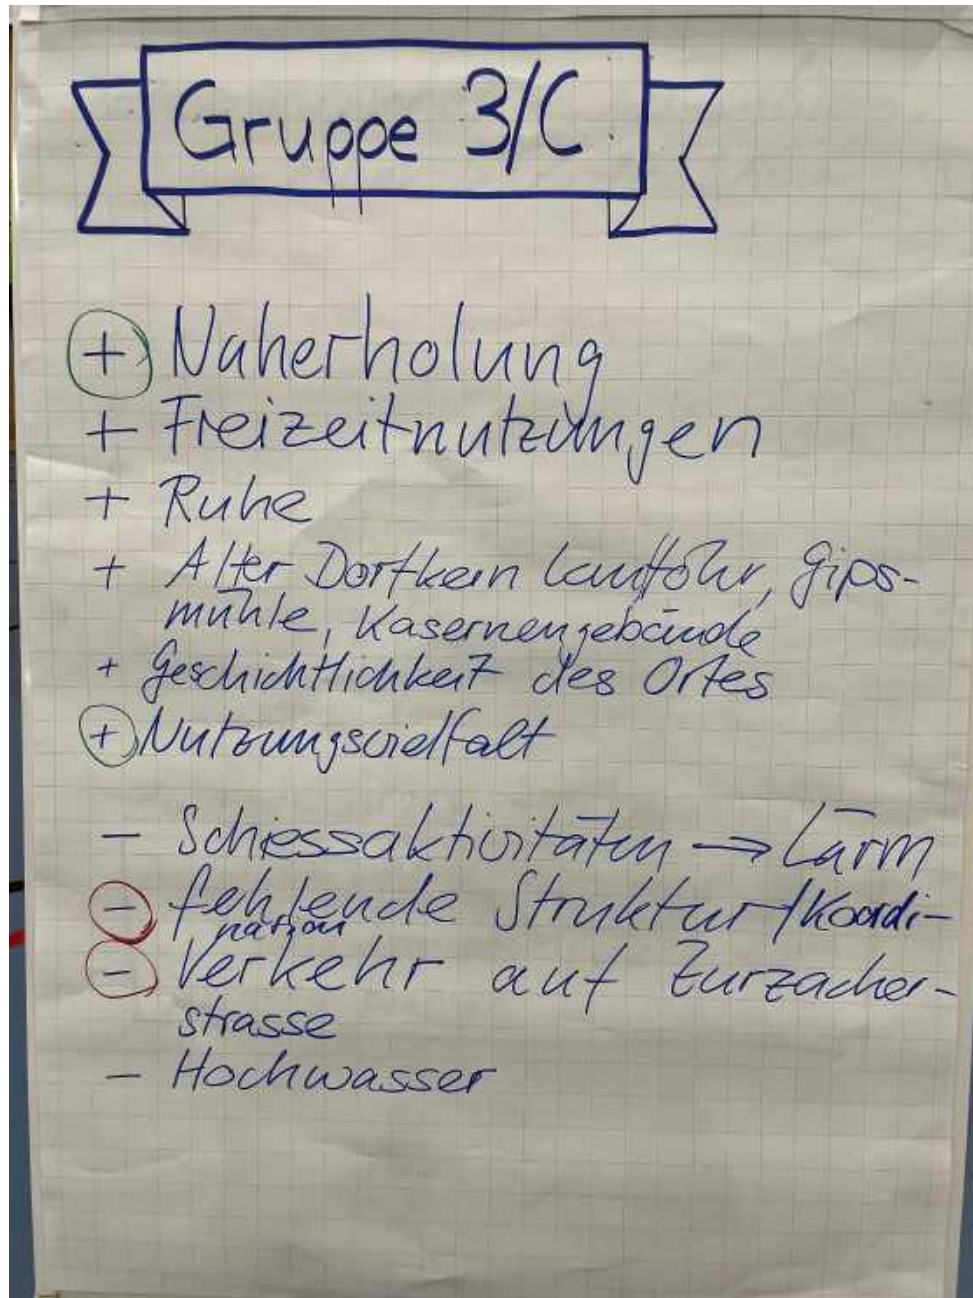 Gruppe 3/C
+ Naherholung
+ Freizeitnutzungen
+ Ruhe
+ Alter Dorfkern Lauffohr, Gips-
mühle, Kasernengebäude
+ Geschichtlichkeit des Ortes
+ Nutzungsvielfalt
- Schiessaktivitäten → Lärm
- fehlende Struktur/Koordi-
nation
- Verkehr auf Zurzacher-
strasse
- Hochwasser